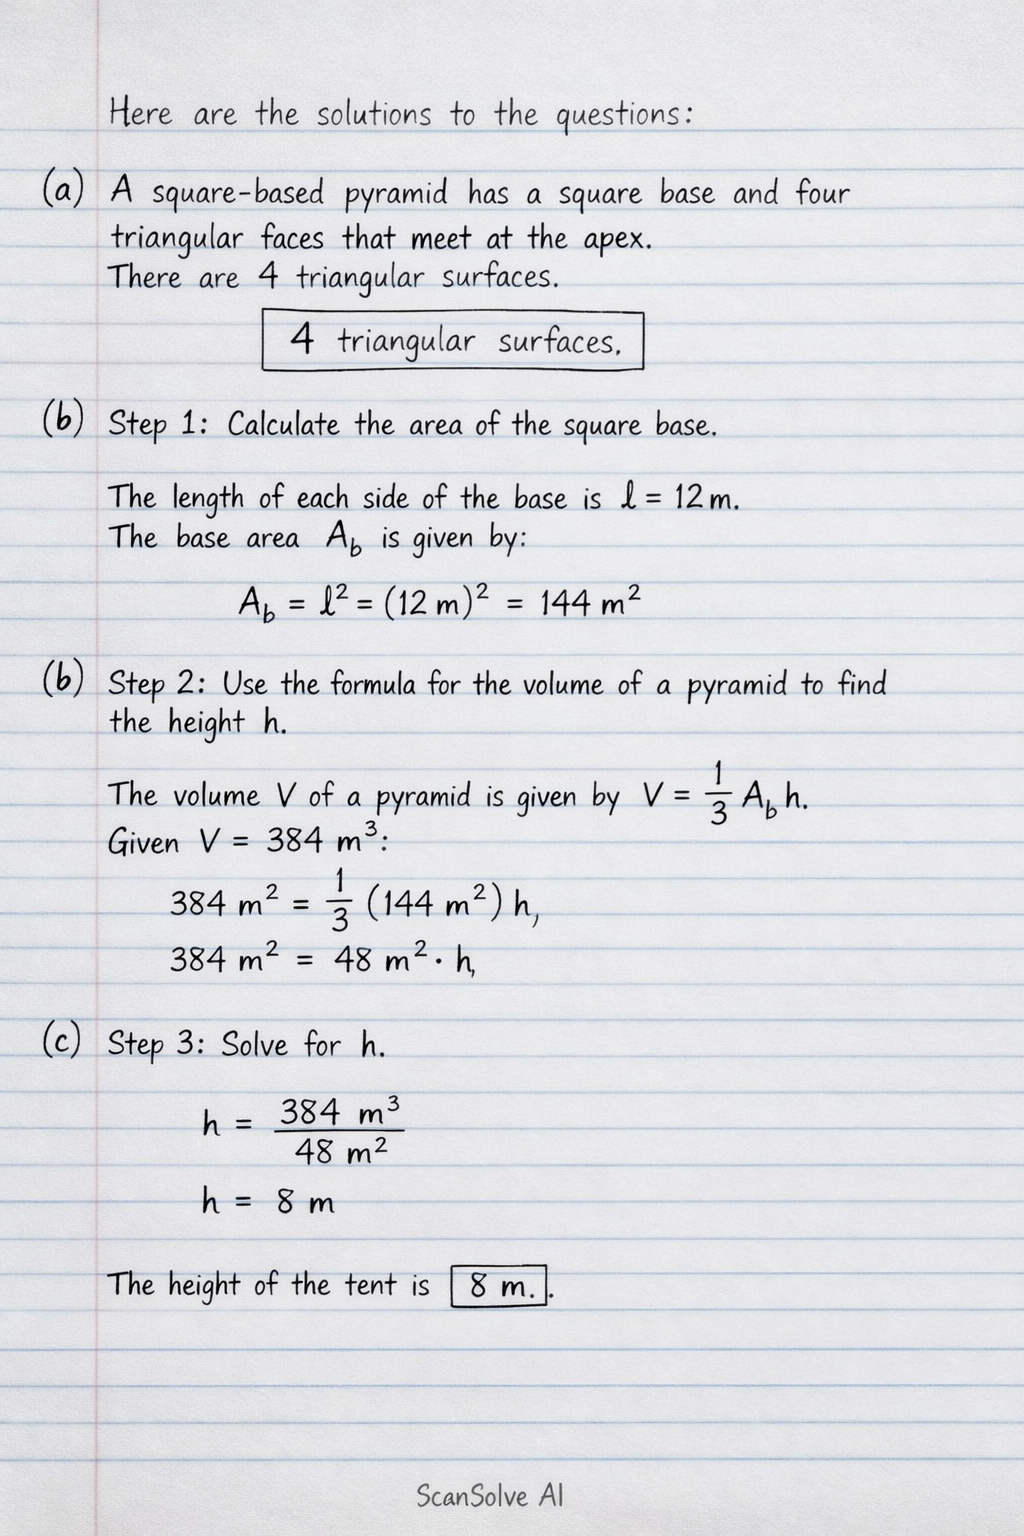 Here are the solutions to the questions:
(a) A square-based pyramid has a square base and four
triangular faces that meet at the apex.
There are 4 triangular surfaces.
4 triangular surfaces.
(b) Step 1: Calculate the area of the square base.
The length of each side of the base is l = 12 m.
The base area A_b is given by:
A_b = l² = (12 m)² = 144 m²
(b) Step 2: Use the formula for the volume of a pyramid to find
the height h.
The volume V of a pyramid is given by V = 1/3 A_b h.
Given V = 384 m³:
384 m² = 1/3 (144 m²) h,
384 m² = 48 m² · h,
(c) Step 3: Solve for h.
h = 384 m³ / 48 m²
h = 8 m
The height of the tent is 8 m..
ScanSolve AI